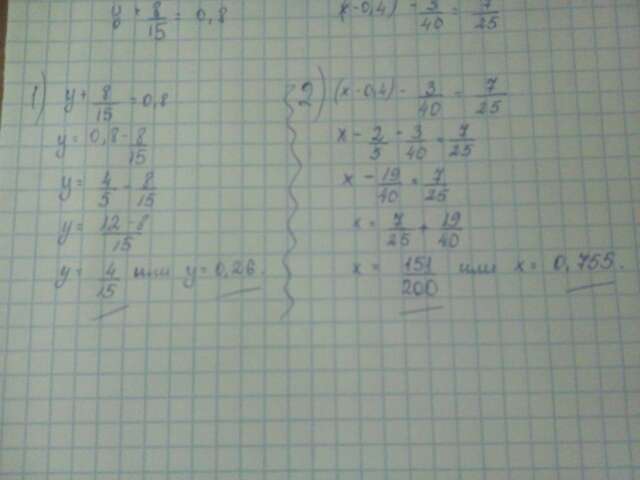 y + 8/15 = 0,8
(x-0,4) - 3/40 = 7/25
1) y + 8/15 = 0,8
y = 0,8 - 8/15
y = 4/5 - 8/15
y = 12-8/15
y = 4/15 или y = 0,26.
2) (x-0,4) - 3/40 = 7/25
x - 2/5 - 3/40 = 7/25
x - 19/40 = 7/25
x = 7/25 + 19/40
x = 151/200 или x = 0,755.